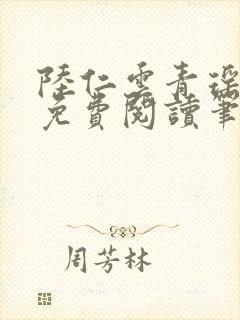 陸仁雲青瑤
免費閱讀筆
周芳林